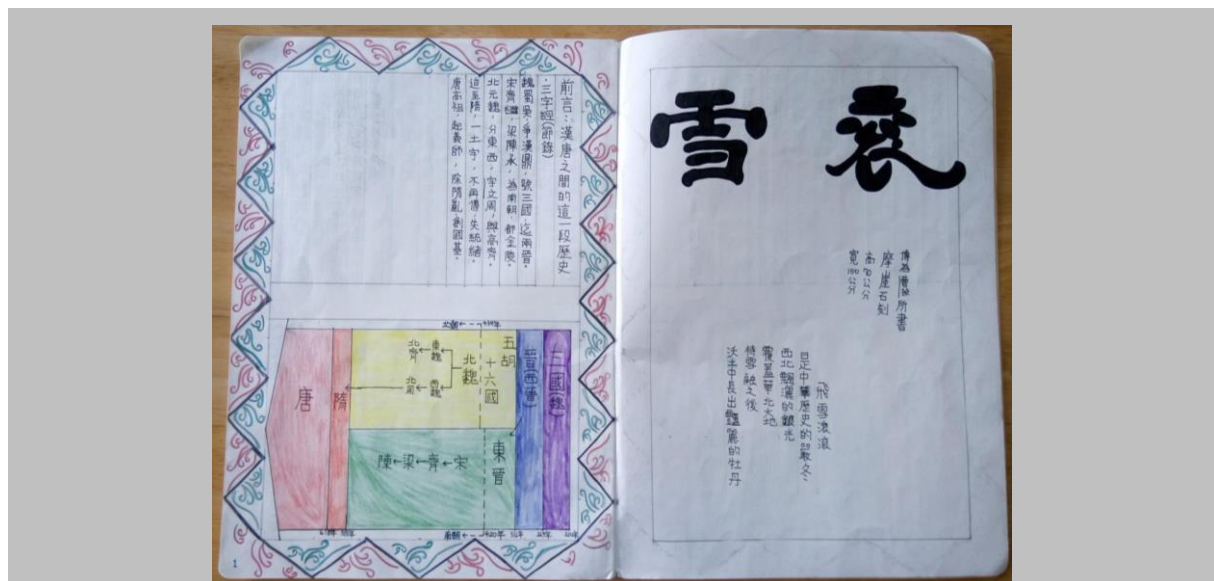 袞雪
傳為曹操所書
摩崖石刻
高 公分
寬 公分
飛雪滾滾
是中華歷史的嚴冬、
西北飄灑的銀光
覆蓋華北大地
待雪融之後
沃土中長出豔麗的牡丹
前言：漢唐之間的這一段歷史
·三字經(節錄)
魏蜀吳，爭漢鼎，號三國，迄兩晉。
宋齊繼，梁陳承，為南朝，都金陵。
北元魏，分東西，宇文周，與高齊。
迨至隋，一土宇，不再傳，失統緒。
唐高祖，起義師，除隋亂，創國基。
三國(魏)
晉(西晉)
五胡
十六國
北朝←
北魏
東魏←
北齊
西魏←
北周
隋
唐
東晉
陳←梁←齊←宋
南朝←--420年
1